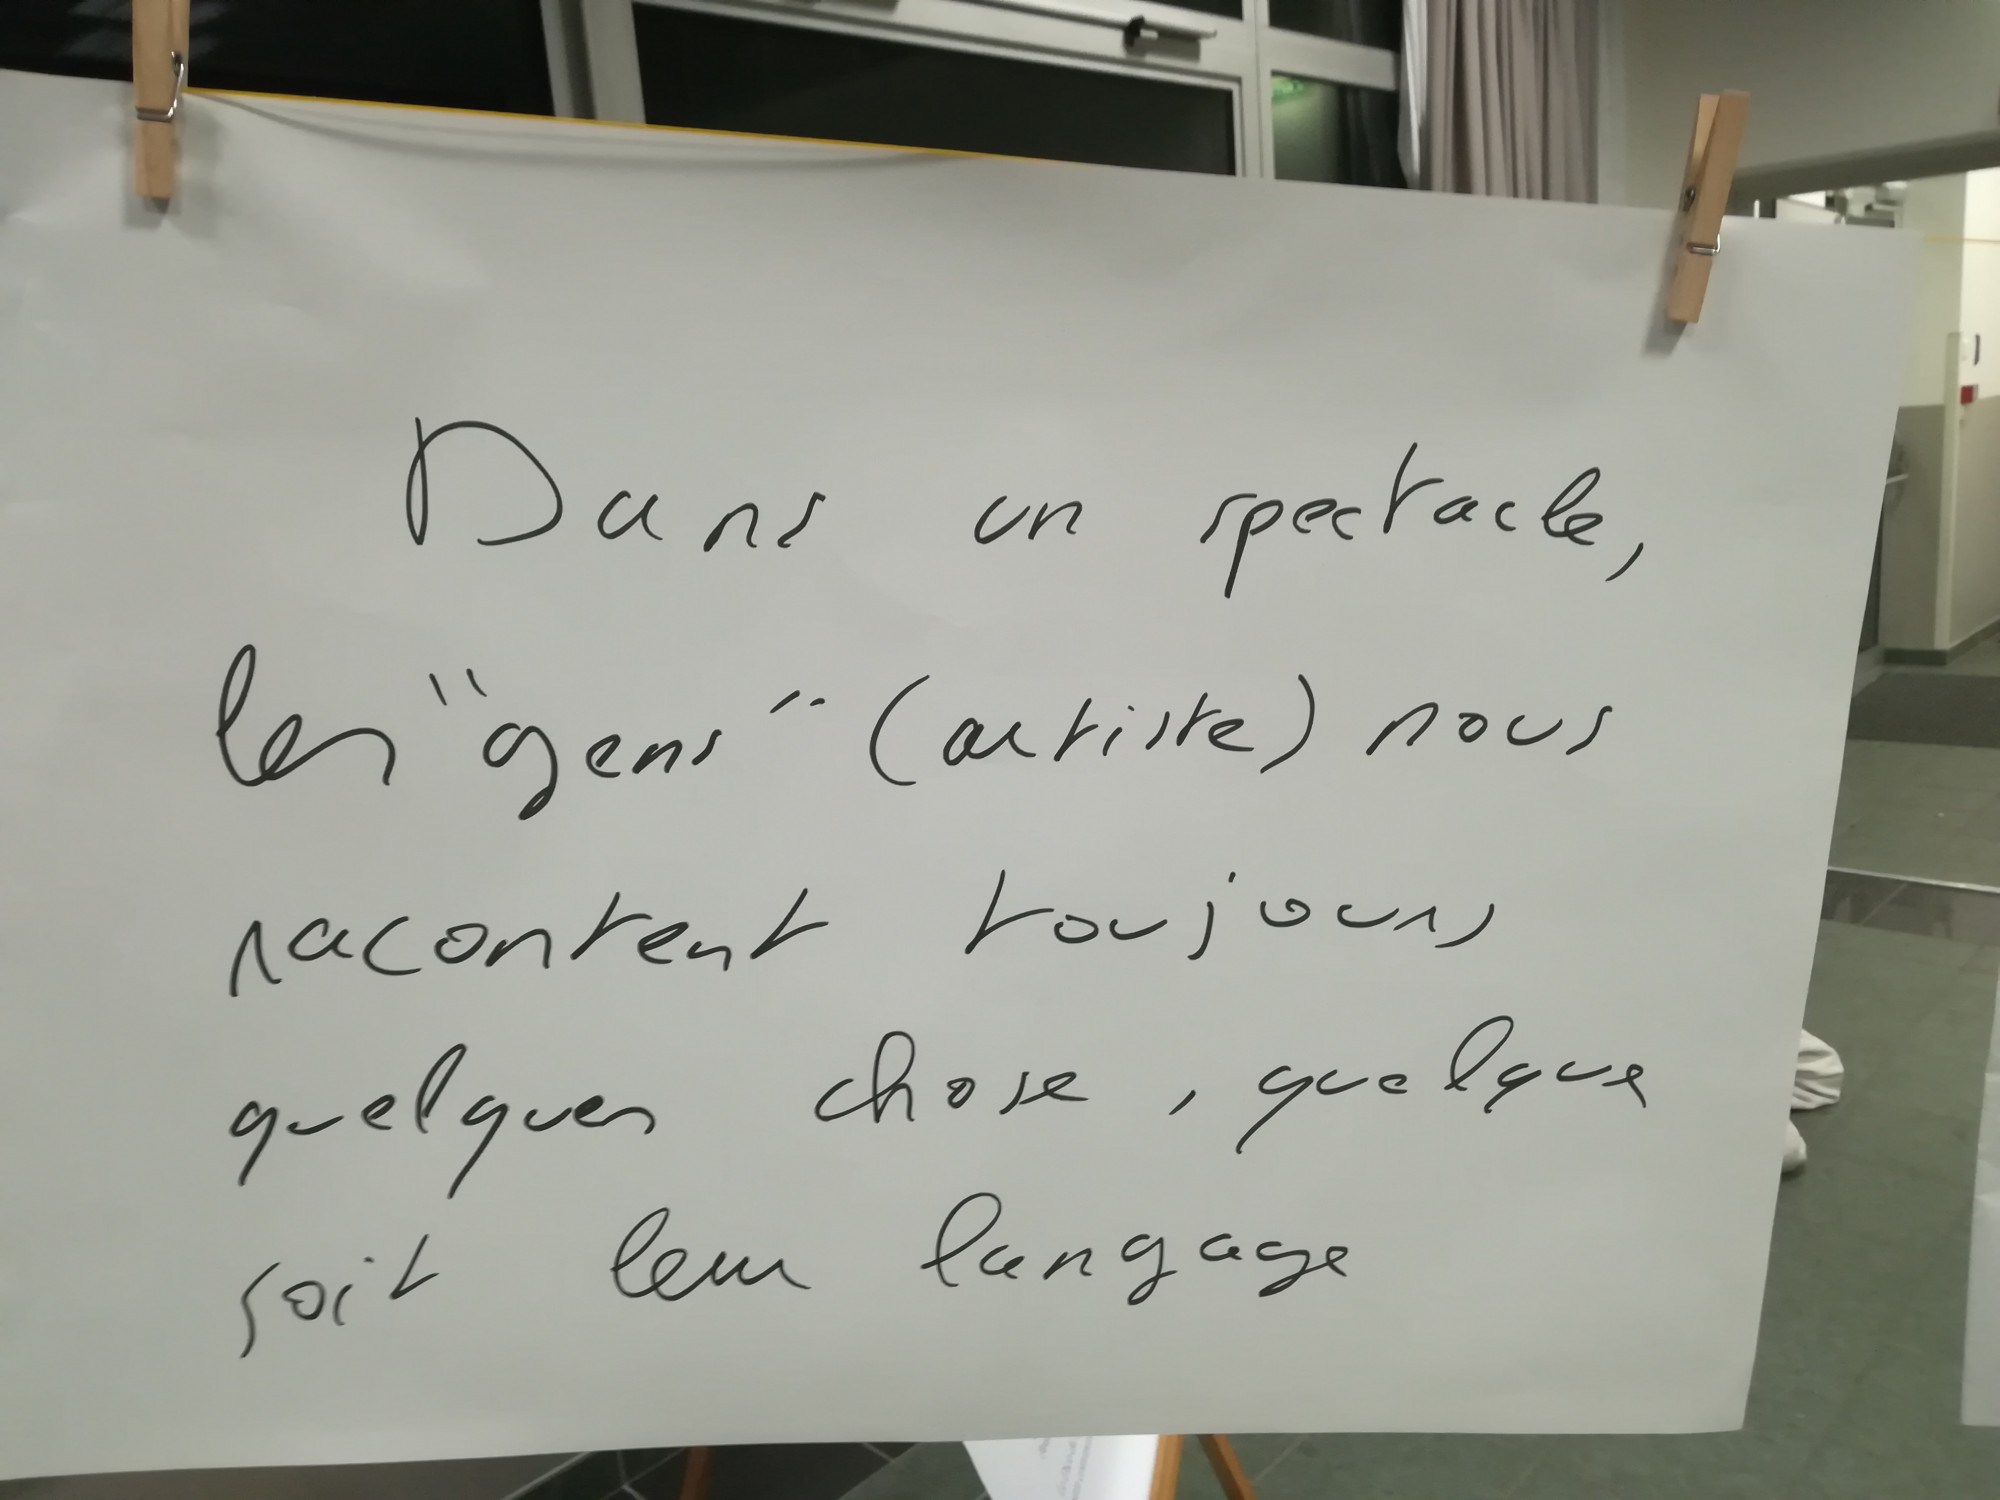 Dans un spectacle,
les "gens" (artiste) nous
racontent toujours
quelques chose, quelque
soit leur langage